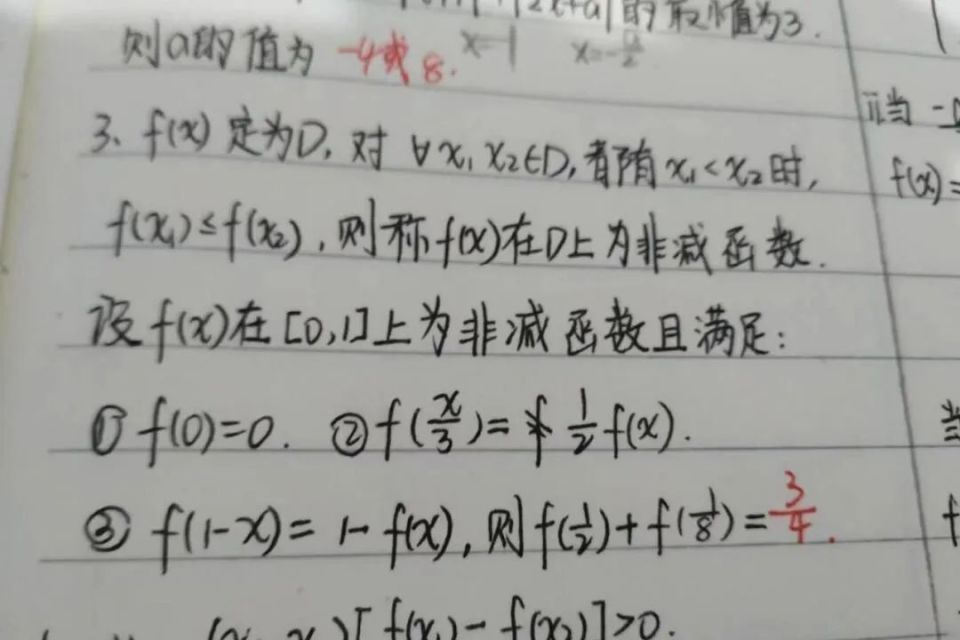 |2x+a|的最小值为3.
则a的值为 -4或8. x=-1 x=-a/2
ii当 -
3、f(x)定为D,对∀x₁x₂∈D,若随x₁<x₂时,
f(x)=
f(x₁)≤f(x₂),则称f(x)在D上为非减函数.
设f(x)在[0,1]上为非减函数且满足:
①f(0)=0. ②f(x/3)=1/2f(x).
当
③f(1-x)=1-f(x),则f(1/2)+f(1/8)=3/4.
f
[f(x₁)-f(x₂)]>0.